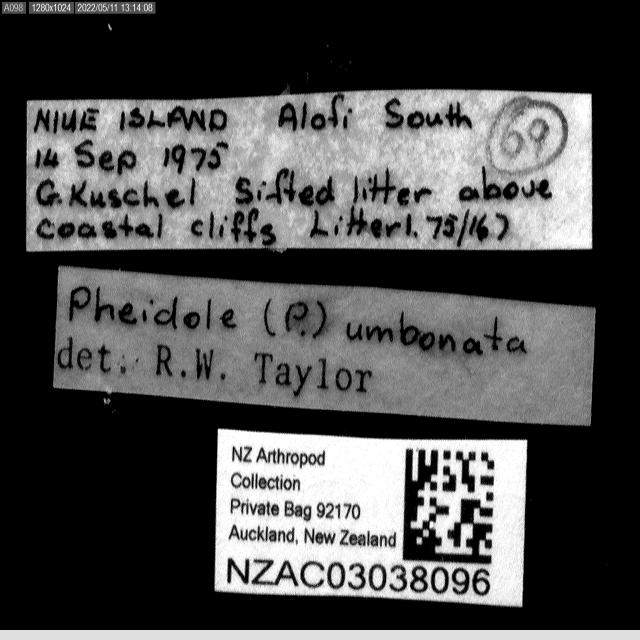 A098 1280x1024 2022/05/11 13:14:08
NIUE ISLAND Alofi South 69
14 Sep 1975
G. Kuschel Sifted litter above
coastal cliffs Litter1. 75/167
Pheidole (P.) umbonata
det. R.W. Taylor
NZ Arthropod
Collection
Private Bag 92170
Auckland, New Zealand
NZAC03038096